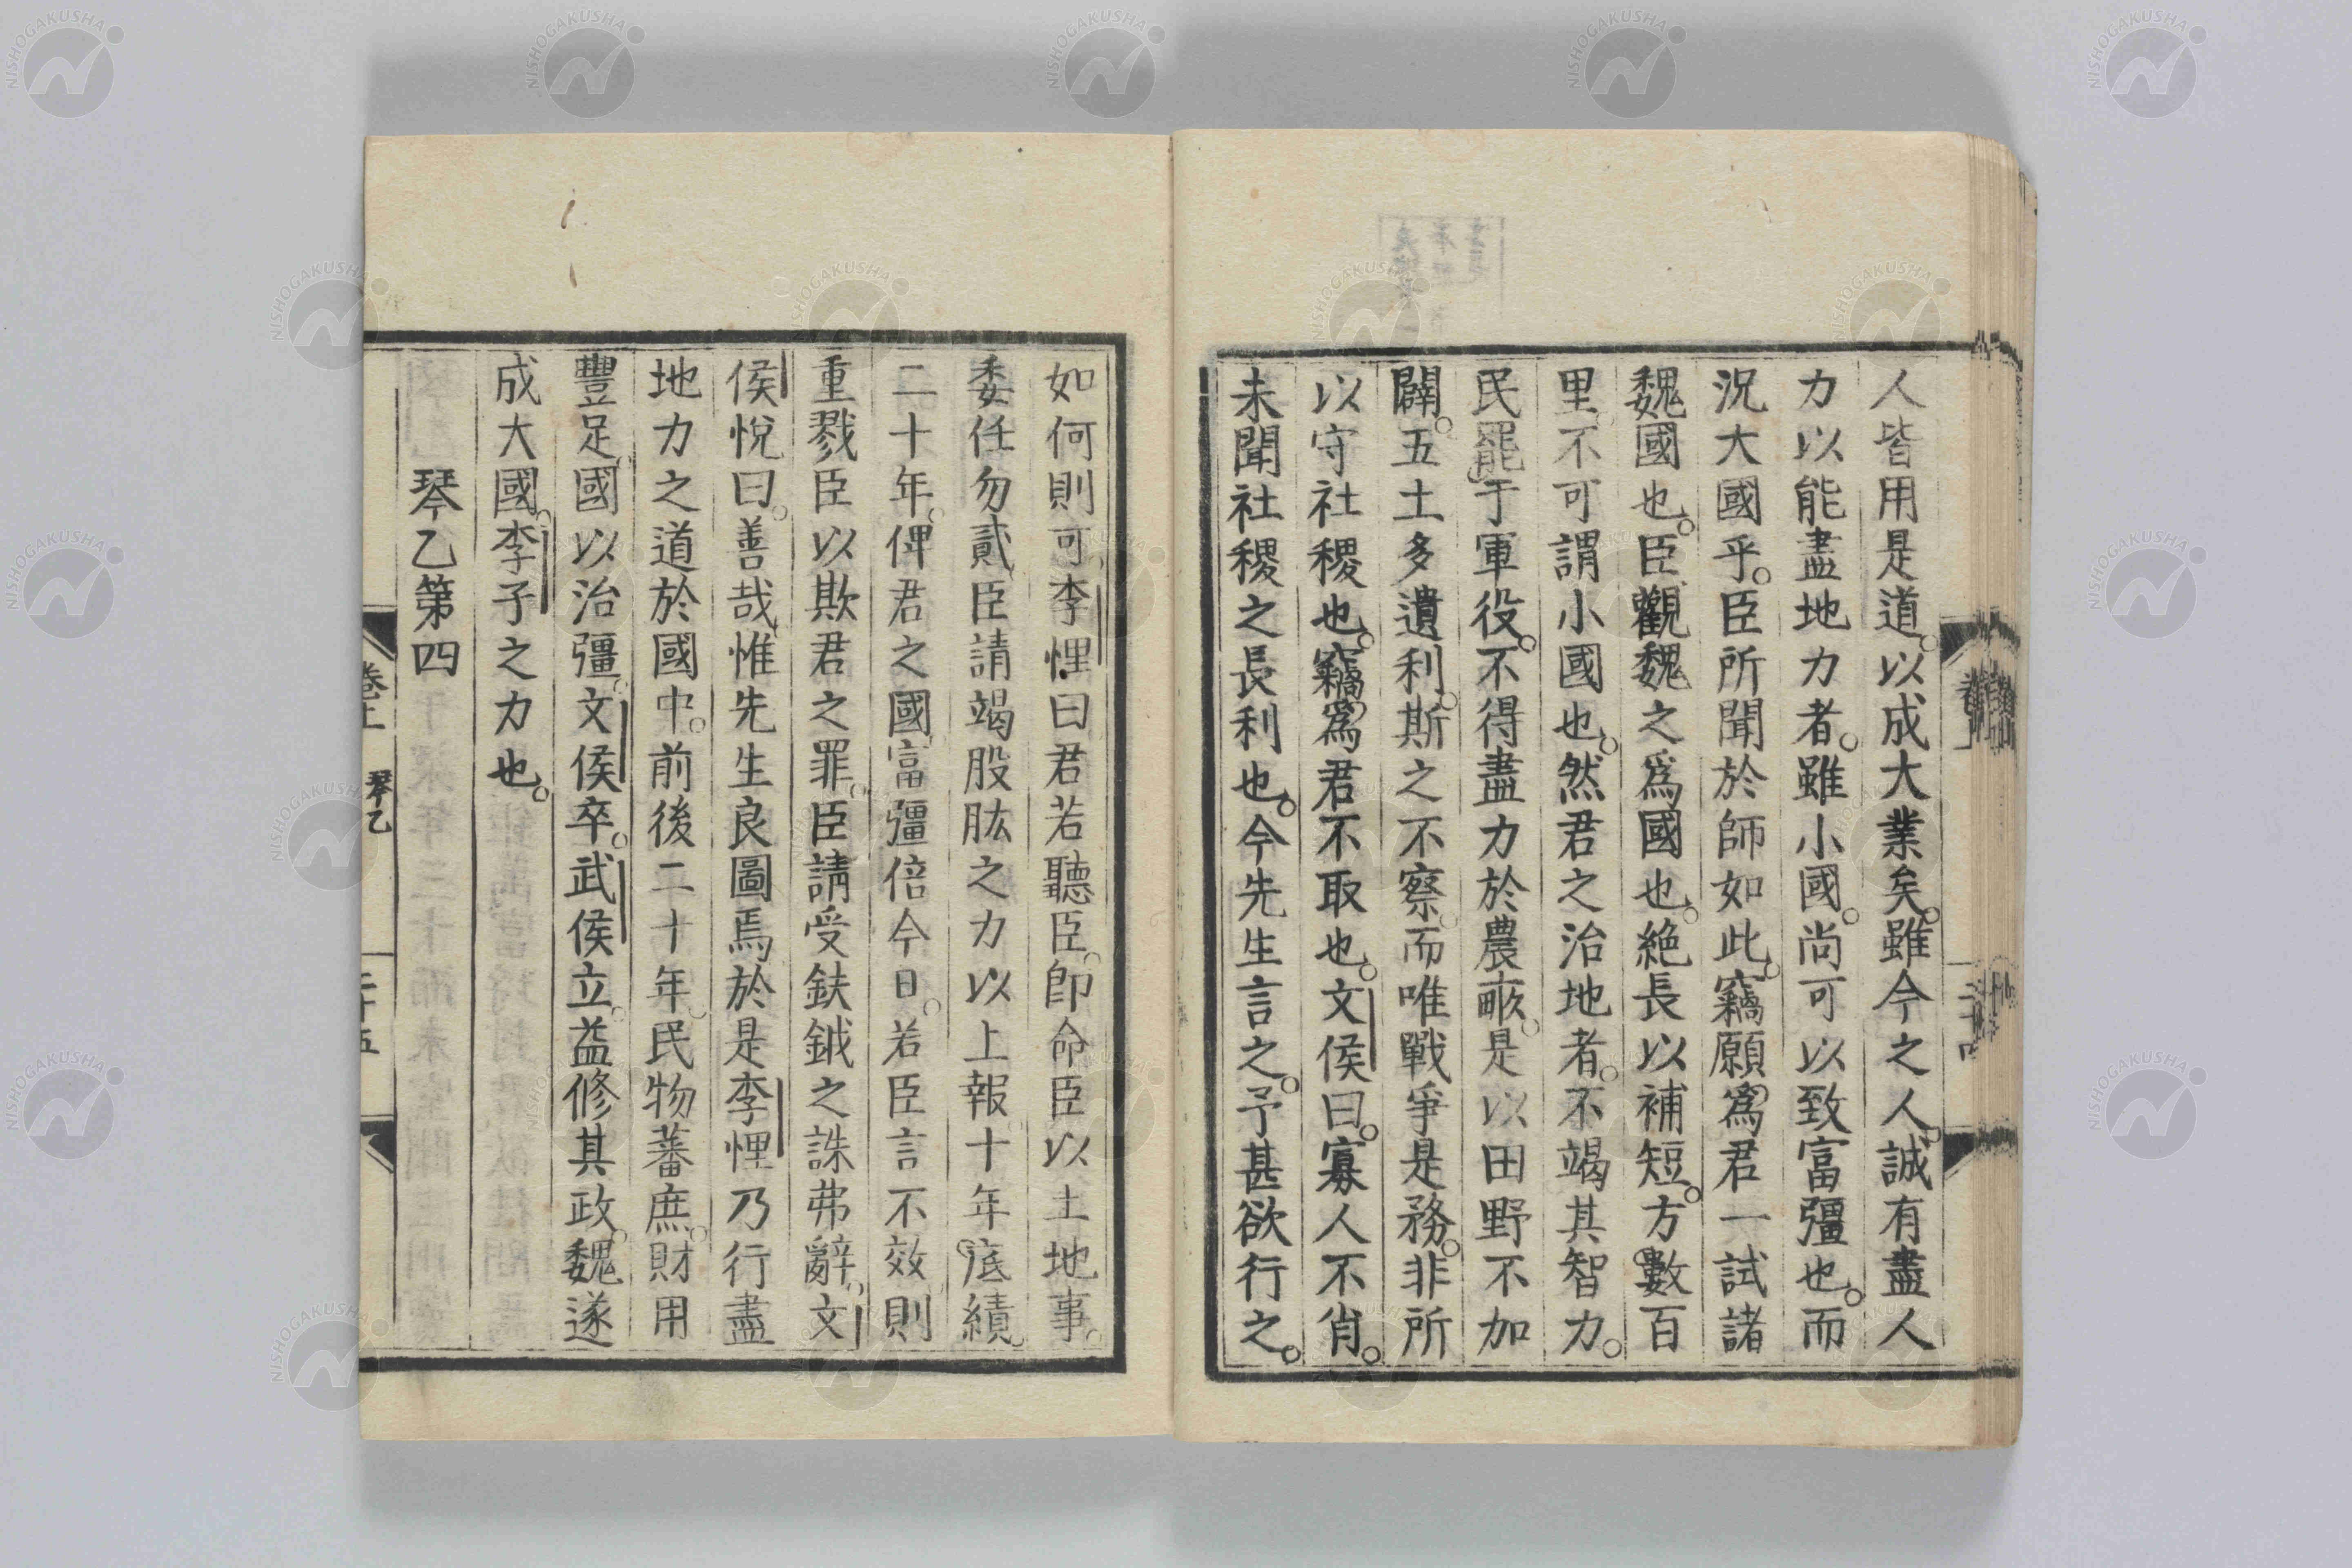 人皆用是道。以成大業矣。雖今之人。誠有盡人
力以能盡地力者。雖小國。尚可以致富彊也。而
況大國乎。臣所聞於師如此。竊願爲君一試諸
魏國也。臣觀魏之爲國也。絶長以補短。方數百
里。不可謂小國也。然君之治地者。不竭其智力。
民罷于軍役。不得盡力於農畝。是以田野不加
闢。五土多遺利。斯之不察。而唯戰爭是務。非所
以守社稷也。竊爲君不取也。文侯曰。寡人不肖。
未聞社稷之長利也。今先生言之。予甚欲行之。
如何則可。李悝曰君若聽臣。卽命臣以土地事。
委任勿貳。臣請竭股肱之力以上報十年底績。
二十年。俾君之國富彊倍今日。若臣言不效。則
重戮臣以欺君之罪。臣請受鈇鉞之誅弗辭。文
侯悅曰。善哉。惟先生良圖焉於是李悝乃行盡
地力之道於國中。前後二十年。民物蕃庶。財用
豐足。國以治彊。文侯卒。武侯立。益修其政。魏遂
成大國。李子之力也。
琴乙第四
卷上 琴乙 二十五
NISHOGAKUSHA